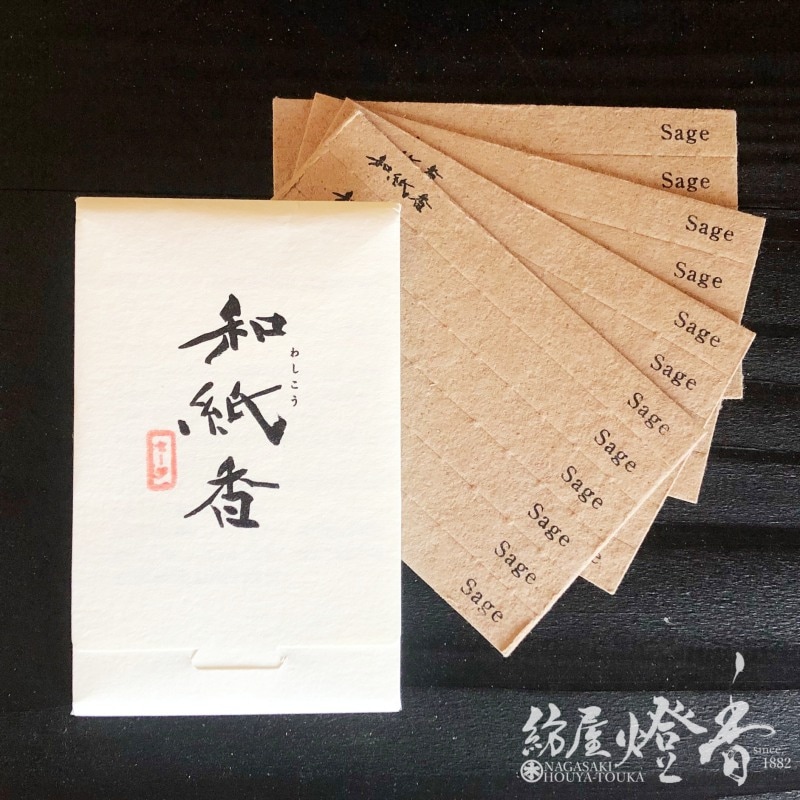 和紙香
わしこう
和紙香
Sage
Sage
Sage
Sage
Sage
Sage
Sage
Sage
Sage
Sage
Sage
Sage
紡屋燈香
since 1882
NAGASAKI
HOUYA-TOUKA